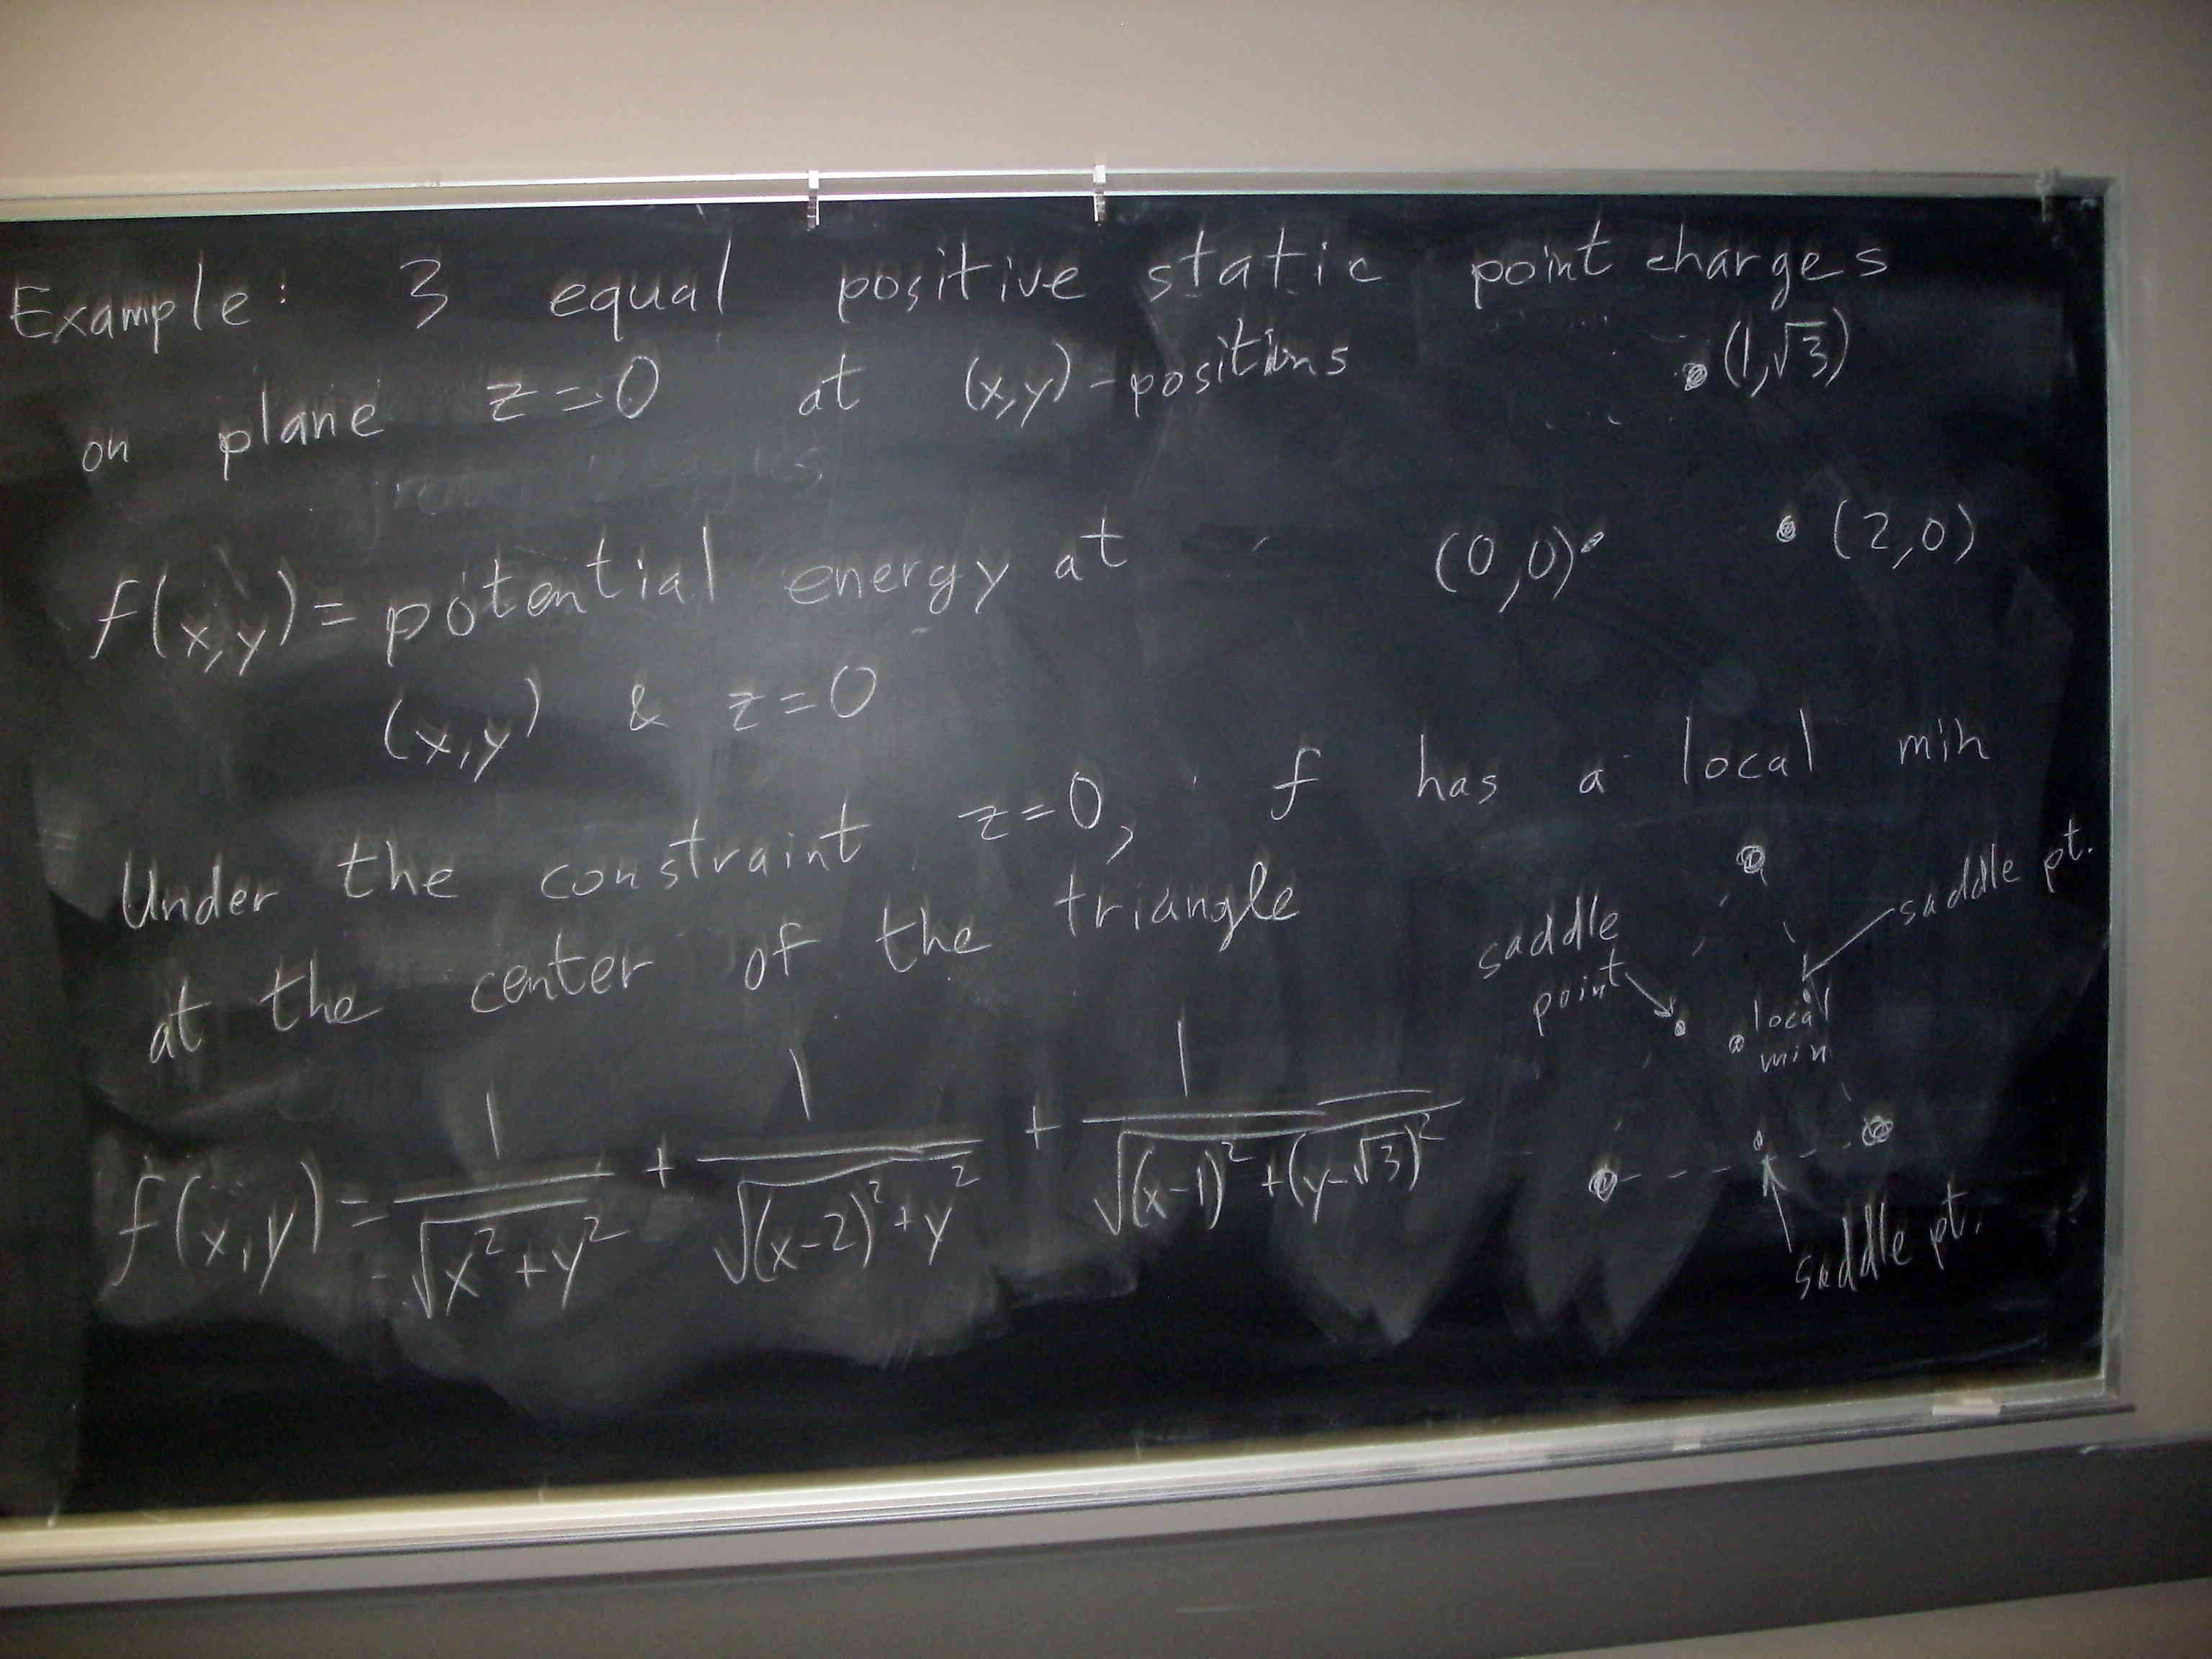 Example: 3 equal positive static point charges
on plane z=0 at (x,y)-positions
(1,√3)
(0,0) (2,0)
f(x,y) = potential energy at
(x,y) & z=0
Under the constraint z=0, f has a local min
at the center of the triangle
saddle point
saddle pt.
local min
saddle pt.
f(x,y) = 1/√(x²+y²) + 1/√((x-2)²+y²) + 1/√((x-1)²+(y-√3)²)